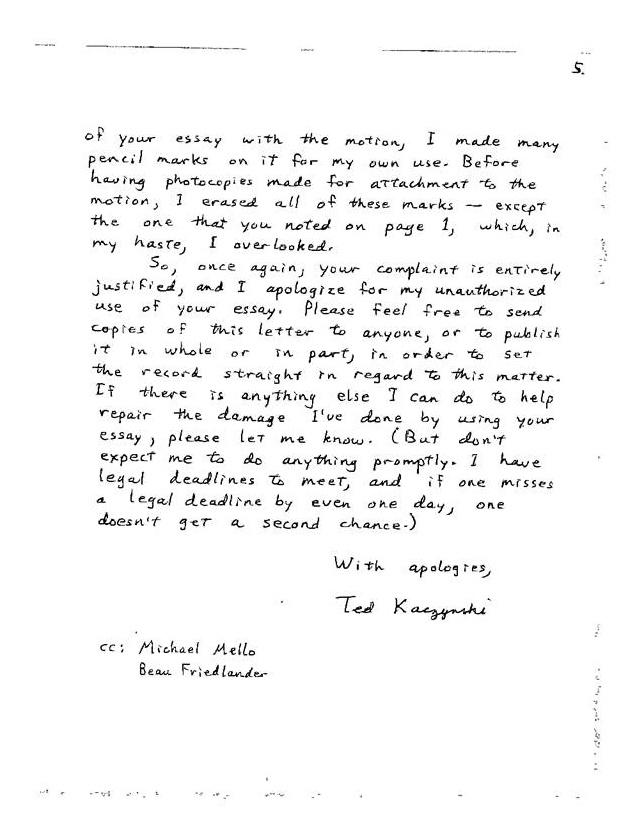 5.
of your essay with the motion, I made many
pencil marks on it for my own use. Before
having photocopies made for attachment to the
motion, I erased all of these marks — except
the one that you noted on page 1, which, in
my haste, I overlooked.
So, once again, your complaint is entirely
justified, and I apologize for my unauthorized
use of your essay. Please feel free to send
copies of this letter to anyone, or to publish
it in whole or in part, in order to set
the record straight in regard to this matter.
If there is anything else I can do to help
repair the damage I've done by using your
essay, please let me know. (But don't
expect me to do anything promptly. I have
legal deadlines to meet, and if one misses
a legal deadline by even one day, one
doesn't get a second chance.)
With apologies,
Ted Kaczynski
cc: Michael Mello
Beau Friedlander